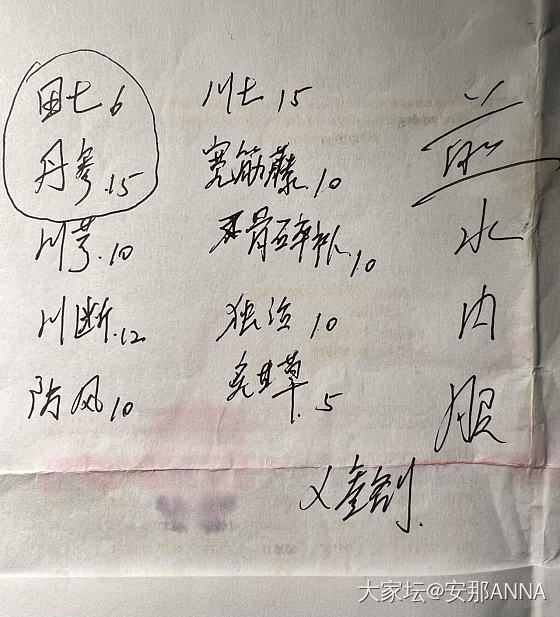 田七6 川七15
丹参.15 宽筋藤.10
川芎.10 骨碎补.10
川断.12 独活10
防风10 炙甘草.5
煎水内服
大家坛@安那ANNA